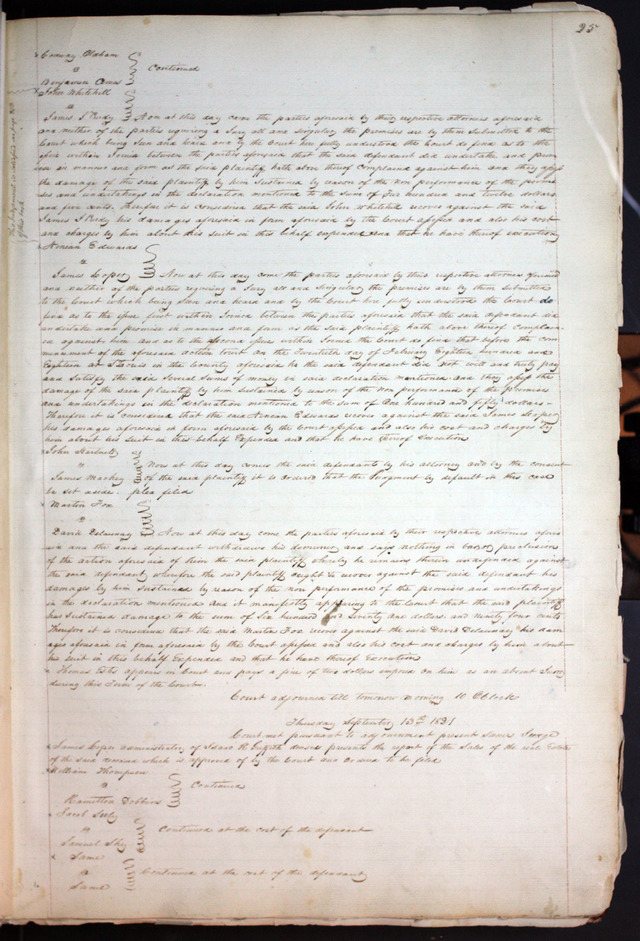 25
Conway Oldham
"
Continued
Benjamin
John Whitehill
"
James S Rudy Now at this day come the parties aforesaid by their respective attorneys aforesaid
and neither of the parties requiring a Jury all and singular the premises are by them Submitted to the
Court which being seen and heard and by the Court here fully understood the Court do find as to the
issue within Joined between the parties aforesaid that the said defendant did undertake and prom
ise in manner and form as the said plaintiff hath above thereof Complained against him and they assess
the damage of the said plaintiff by him Sustained by reason of the non performance of the promis
es and undertakings in the declaration mentioned to the sum of hundred and twelve dollars
and five cents. Therefore it is considered that the said John Whitehill recover against the said
James S Rudy his damages aforesaid in form aforesaid by the Court assessed and also his cost
and charges by him about his suit in this behalf expended and that he have thereof execution
Ninean Edwards
"
James Looper Now at this day come the parties aforesaid by their respective attorneys aforesaid
and neither of the parties requiring a Jury all and singular the premises are by them Submitted
to the Court which being seen and heard and by the Court here fully understood the Court do
find as to the issue first within Joined between the parties aforesaid that the said defendant did
undertake and promise in manner and form as the said plaintiff hath above thereof complain
ed against him and as to the second issue within Joined the Court do find that before the com
mencement of the aforesaid action to wit on the Twentieth day of February Eighteen hundred and
Eighteen at St Louis in the County aforesaid he the said defendant did not well and truly pay
and satisfy the said several sums of money in said declaration mentioned and they assess the
damage of the said plaintiff by him sustained by reason of the non performance of the promises
and undertakings in the declaration mentioned to the sum of One hundred and fifty dollars
Therefore it is considered that the said Ninean Edwards recover against the said James Looper
his damages aforesaid in form aforesaid by the Court assessed and also his cost and charges by
him about his suit in this behalf Expended and that he have thereof Execution
John
"
Now at this day comes the said defendants by his attorney and by the consent
James Mackey of the said plaintiff it is ordered that the Judgment by default in this case
be set aside. pleas filed
Martin Fox
"
David Delaunay Now at this day come the parties aforesaid by their respective attorneys afore
said and the said defendant withdraws his demurrer and says nothing in bar or preclusion
of the action aforesaid of him the said plaintiff whereby he remains therein undefended against
the said defendant wherefore the said plaintiff ought to recover against the said defendant his
damages by him Sustained by reason of the non performance of the promises and undertakings
in the declaration mentioned and it manifestly appearing to the Court that the said plaintiff
has Sustained damage to the sum of Six hundred and Seventy one dollars and ninety four cents
Therefore it is considered that the said Martin Fox recover against the said David Delaunay his dam
ages aforesaid in form aforesaid by the Court assessed and also his cost and charges by him about
his suit in this behalf Expended and that he have thereof Execution
Thomas Estes appears in Court and pays a fine of two dollars imposed on him as an absent Juror
during this Term of the Court.
Court adjourned till tomorrow morning 10 OClock
Thursday September 13th 1821
Court met pursuant to adjournment present same Judge
James administrator of Isaac R Griffith deceased presents the report of the sales of the real Estate
of the said deceased which is approved of by the Court and ordered to be filed
William Thompson
"
Continued
Hamilton Dobbins
"
Continued at the cost of the defendant
Samuel Shy
Same
"
Continued at the cost of the defendant
Same